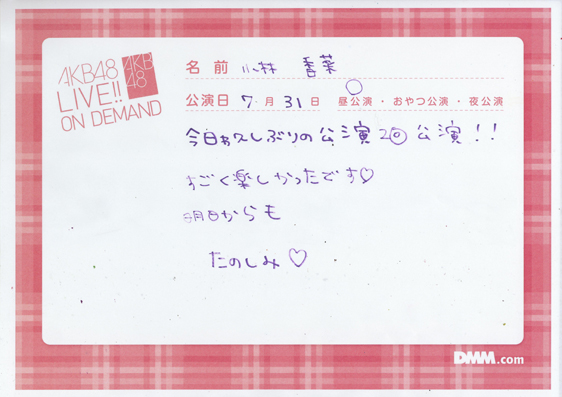 AKB48
LIVE!!
ON DEMAND
AKB
48
名前 小林 香菜
公演日 7月31日 昼公演・おやつ公演・夜公演
今日わ久しぶりの公演2回公演！！
すごく楽しかったです♡
明日からも
たのしみ♡
DMM.com